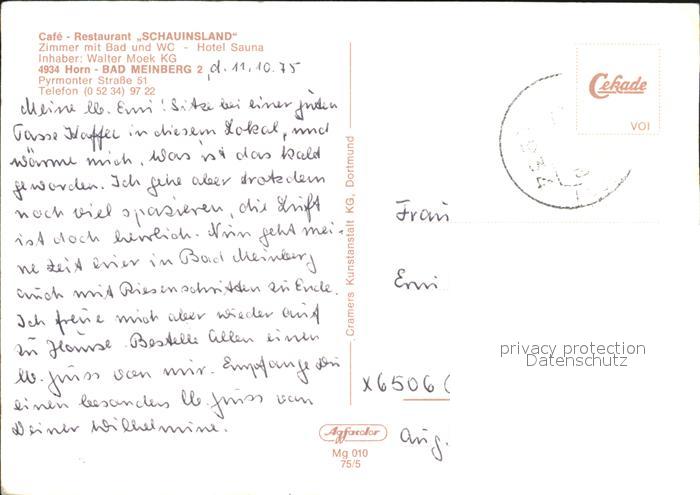 Café - Restaurant „SCHAUINSLAND“
Zimmer mit Bad und WC - Hotel Sauna
Inhaber: Walter Moek KG
4934 Horn - BAD MEINBERG 2
Pyrmonter Straße 51
Telefon (0 52 34) 97 22
d. 11.10.75
Meine lb. Erni! Sitze bei einer guten
Tasse Kaffee in diesem Lokal, und
wärme mich, was ist das kalt
geworden. Ich gehe aber trotzdem
noch viel spazieren, die Luft
ist doch herrlich. Nun geht mei-
ne Zeit hier in Bad Meinberg
auch mit Riesenschritten zu Ende.
Ich freue mich aber wieder auf
zu Hause. Bestelle Allen einen
lb. Gruss von mir. Empfange Du
einen besonders lb. Gruss von
Deiner Wilhelmine.
Cramers Kunstanstalt KG, Dortmund
Cekade
VOI
Frau
Erni
X6506
Aug.
privacy protection
Datenschutz
Agfacolor
Mg 010
75/5